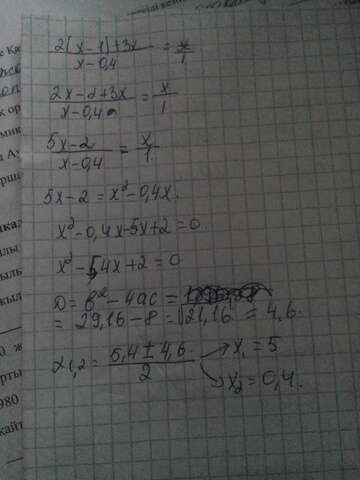 2(x-1)+3x / x-0,4 = x/1
2x-2+3x / x-0,4 = x/1
5x-2 / x-0,4 = x/1
5x-2 = x²-0,4x.
x²-0,4x-5x+2=0.
x²-5,4x+2=0
D = b²-4ac =
= 29,16-8=√21,16 = 4,6.
x1,2 = 5,4±4,6 / 2 → x₁ = 5
→ x₂ = 0,4.